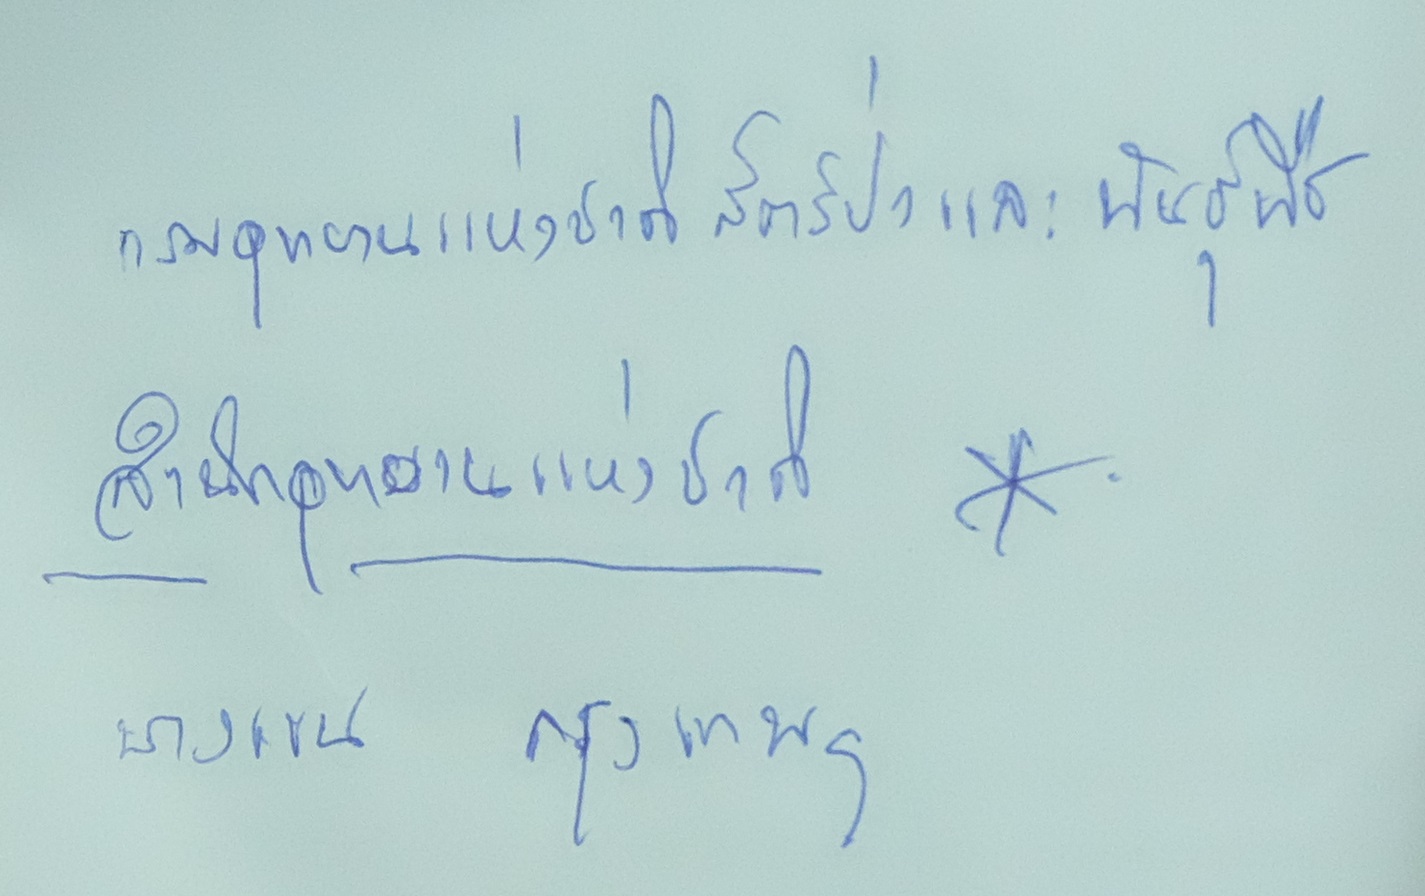 กรมอุทยานแห่งชาติ สัตว์ป่า และ พันธุ์พืช
สำนักอุทยานแห่งชาติ *
บางเขน กรุงเทพฯ